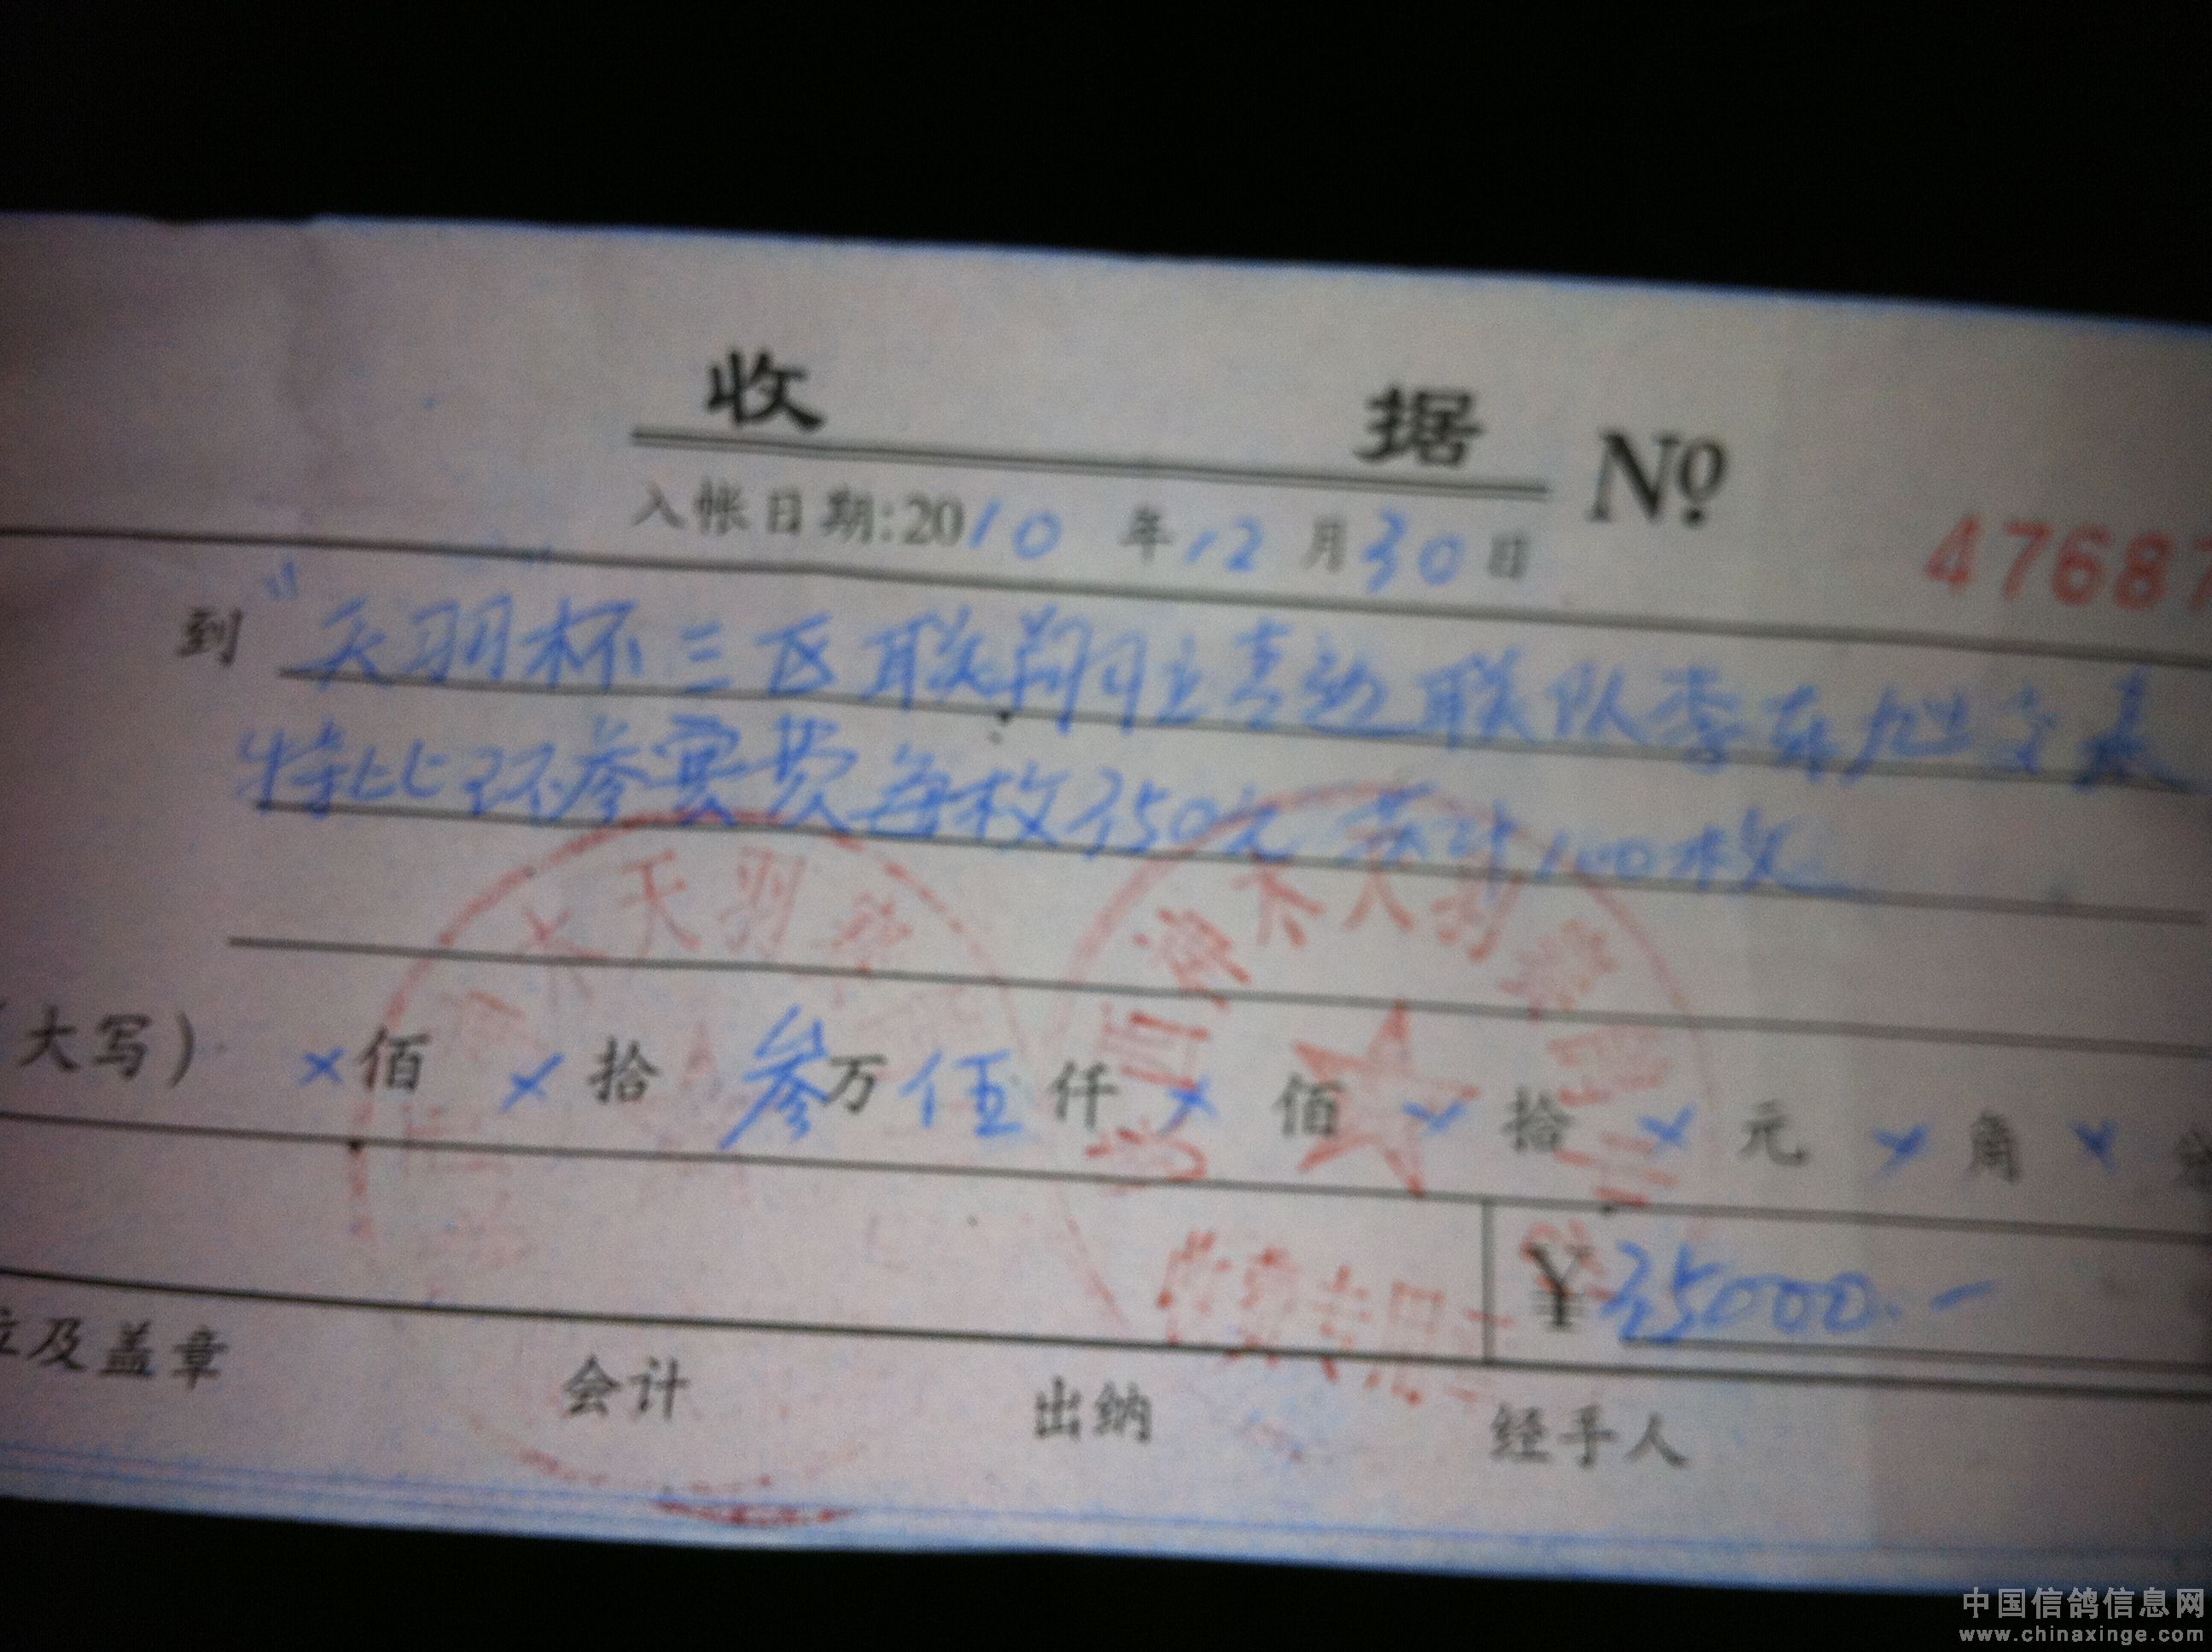 收 据 Nº
47687
入帐日期:2010年12月30日
到 "天羽杯"三区联翔 联队李
特比环参赛费每枚350元 共计100枚
天羽
卡天羽
(大写) ×佰×拾叁万伍仟×佰×拾×元×角×
¥35000.-
专用
位及盖章 会计 出纳 经手人
中国信鸽信息网
www.chinaxinge.com